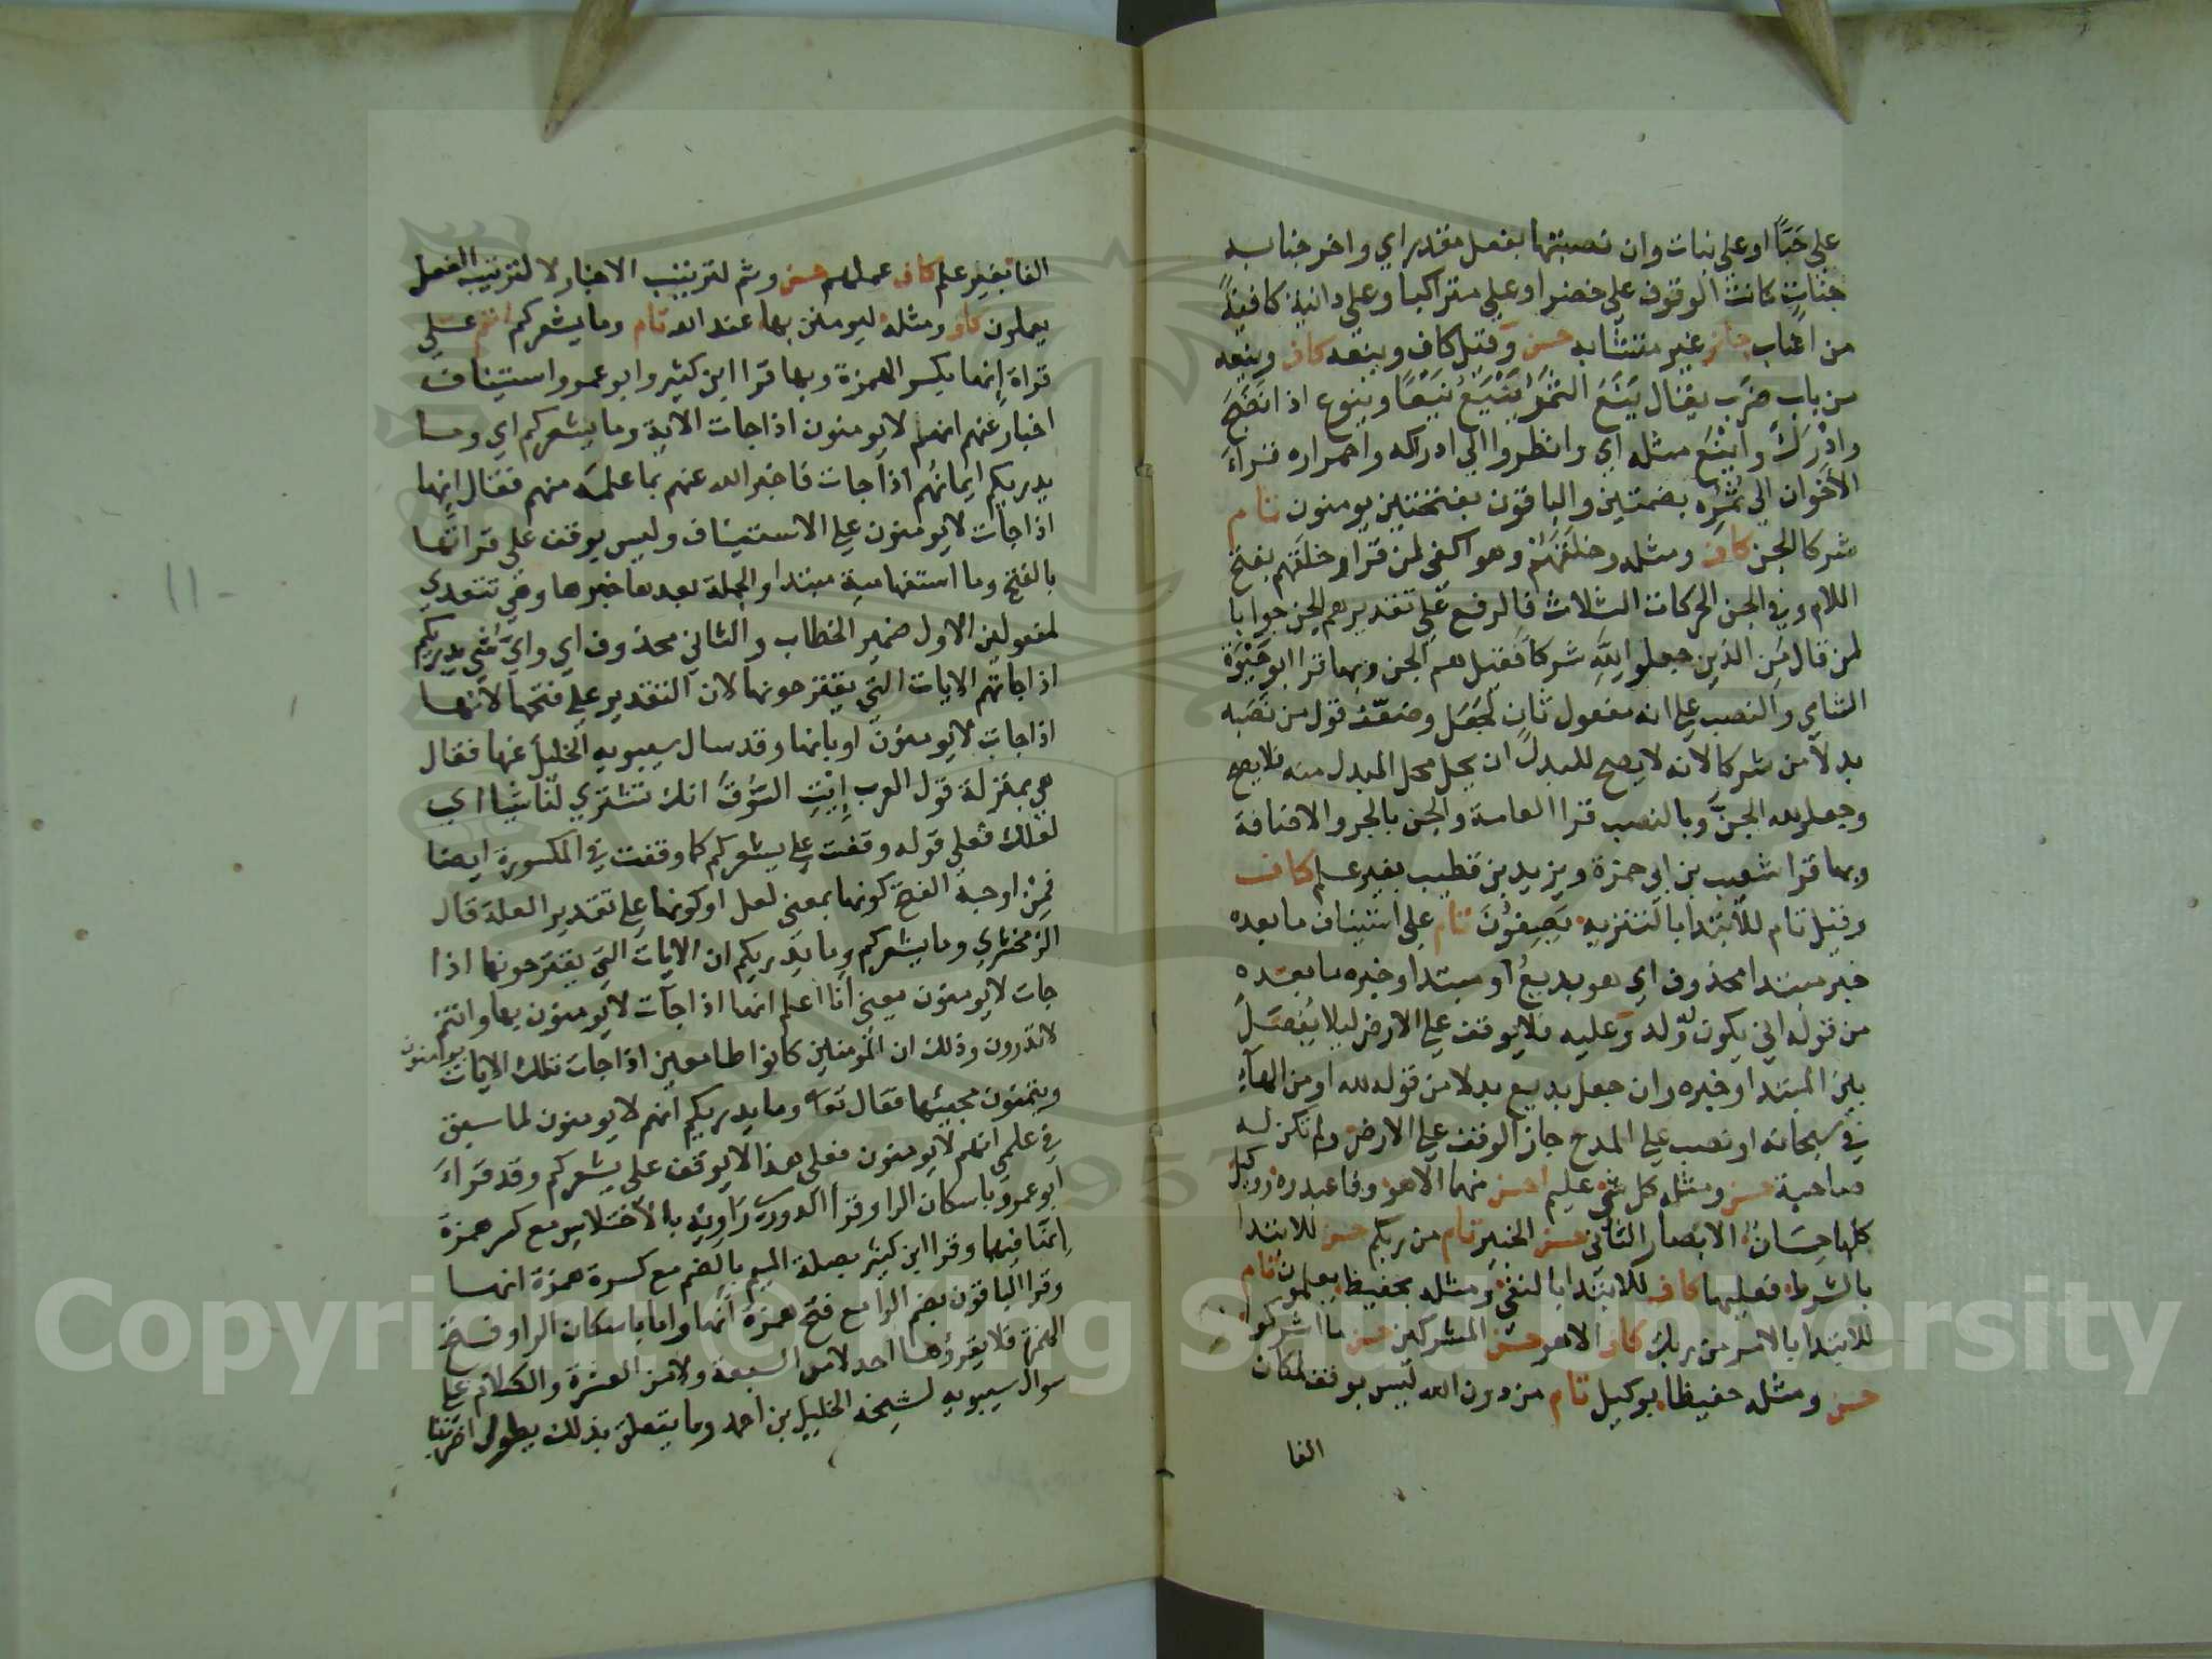 على حَبًّا او على نبات وان نصبتها بفعل مقدر اي واخرجنا به
جناتٍ كانت الوقوف على خضرا وعلى متراكبا وعلى دانية كافيةً
من اعناب جائز غير متشابه حسن وقيل كاف وينعه كاف وينعه
من باب ضَرَب يقال يَنَعَ الثمَرُ يَيْنَعُ يَنْعًا وينوع اذا نضَجَ
وادرَكَ واَيْنَعَ مثله اي وانظروا الى ادراكه واحمراره قراءَ
الاَخَوان الى ثُمُرِه بضمتين والباقون بفتحتين يومنون تام
شركا الجن كاف ومثله وخلقهم وهو اكفى لمن قرا وخلقهم بفتح
اللام وفي الجن الحركات الثلاث فالرفع على تقدير هم الجن جوابا
لمن قال مَن الذين جعلوا لله شركا فقيل هم الجن وبها قرا ابو حَيْوَة
الشامي والنصب على انه مفعول ثان لجَعَل وضعّف قول من نصَبه
بدلا من شركا لانه لا يصح للبدل ان يحل محل المبدل منه فلا يصح
وجعلو لله الجنَّ وبالنصب قرا العامة والجن بالجر والاضافة
وبها قرا شعيب بن ابي حمزة ويزيد بن قطيب بغير علم كاف
وقيل تام للابتدا بالتنزيه يَصِفُونَ تام على استيناف ما بعده
خبر مبتدا محذوف اي هو بديعُ او مبتدا وخبره ما بعده
من قوله انى يكون له ولد وعليه فلا يوقف على الارض ليلا يُفصَلَ
بين المبتدا وخبره وان جعل بديع بدلا من قوله لله او من الهآءِ
في سبحانه او نصب على المدح جاز الوقف على الارض ولم تكن له
صاحبة حسن ومثله كل شي عليم احسن منهما الا هو وفاعبدوه ووكيل
كلها حِسَانُ الابصار الثاني حسن الخبير تام من ربكم حسن للابتدا
بالشرط فعليها كاف للابتدا بالنفي ومثله بحفيظ يعلمون تام
للابتدا بالامر من ربك كاف الا هو حسن المشركين حسن ما اشركوا
حسن ومثله حفيظا بوكيل تام من دون الله ليس بوقف لمكان
الفا
الفا بغير علم كاف عملهم حسن وثم لترتيب الاخبار لا لترتيب الفعل
يعملون كاف ومثله ليومنن بها عند الله تام وما يشعركم اتم على
قراة إنها بكسر الهمزة وبها قرا ابن كثير وابو عمرو استيناف
اخبار عنهم انهم لا يومنون اذا جات الاية وما يشعركم اي وما
يدريكم ايمانُهم اذا جات فاخبر الله عنهم بما علمه منهم فقال إنها
اذا جات لا يومنون على الاستيناف وليس يوقف على قراتها
بالفتح وما استفهامية مبتدا والجملة بعدها خبرها وهي تتعدي
لمفعولين الاول ضمير الخطاب والثاني محذوف اي واي شي يدريكم
اذا جاتهم الايات التي يقترحونها لان التقدير على فتحها لانها
اذا جات لا يومنون او بانها وقد سال سيبويه الخليل عنها فقال
هي بمنزلة قول العرب إيتِ السُّوقَ انك تشتري لنا شيا اي
لعلك فعلى قوله وقفت على يشعركم كما وقفت في المكسورة ايضا
فمن اوجه الفتح كونها بمعنى لعل او كونها على تقدير العلة قال
الزمخشري وما يشعركم وما يدريكم ان الايات التي يقترحونها اذا
جات لا يومنون يعني أنا اعلم انها اذا جآت لا يومنون بها وانتم
لا تدرون وذلك ان المومنين كانوا طامعين اذا جات تلك الايات يومنون
ويتمنون مجيئها فقال تع وما يدريكم انهم لا يومنون لما سبق
في علمي انهم لا يومنون فعلى هذا لا يوقف على يشعركم وقد قراءَ
ابو عمرو باسكان الرا وقرا الدوري راويه بالاختلاس مع كسر همزة
إنها فيهما وقرا ابن كثير بصلة الميم بالضم مع كسرة همزة انها
وقرا الباقون بضم الرا مع فتح همزة أنها واما باسكان الرا وفتح
الهمزة فلا يقرؤها احد لا من السبعة ولا من العشرة والكلام على
سوال سيبويه لشيخه الخليل بن احمد وما يتعلق بذلك يطول اضربنا